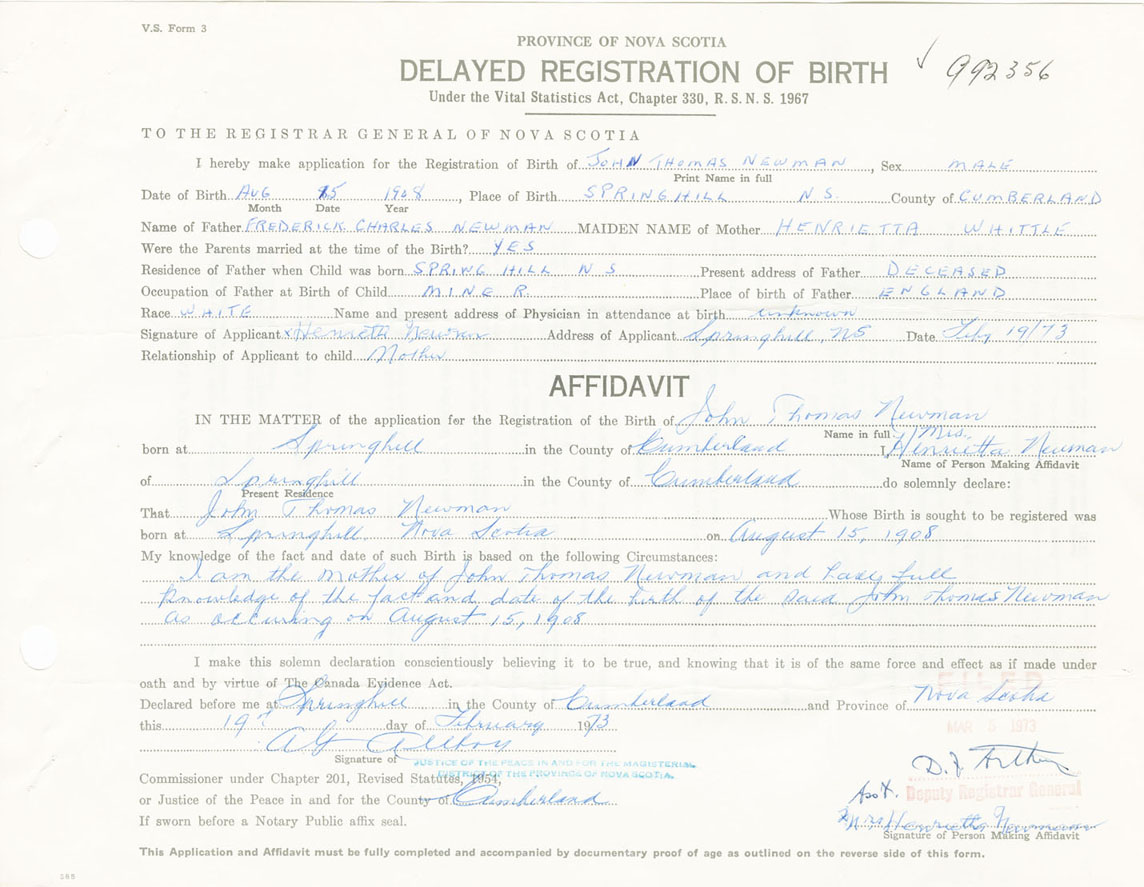 V.S. Form 3
PROVINCE OF NOVA SCOTIA
DELAYED REGISTRATION OF BIRTH
992356
Under the Vital Statistics Act, Chapter 330, R. S. N. S. 1967
TO THE REGISTRAR GENERAL OF NOVA SCOTIA
I hereby make application for the Registration of Birth of JOHN THOMAS NEWMAN, Sex MALE
Print Name in full
Date of Birth AUG 15 1908, Place of Birth SPRINGHILL N S. County of CUMBERLAND
Month Date Year
Name of Father FREDERICK CHARLES NEWMAN MAIDEN NAME of Mother HENRIETTA WHITTLE
Were the Parents married at the time of the Birth? YES
Residence of Father when Child was born SPRING HILL N S Present address of Father DECEASED
Occupation of Father at Birth of Child MINER Place of birth of Father ENGLAND
Race WHITE Name and present address of Physician in attendance at birth unknown
Signature of Applicant x Henrietta Newman Address of Applicant Springhill, NS Date Feb 19/73
Relationship of Applicant to child Mother
AFFIDAVIT
IN THE MATTER of the application for the Registration of the Birth of John Thomas Newman
Name in full
born at Springhill in the County of Cumberland I, Mrs. Henrietta Newman
Name of Person Making Affidavit
of Springhill in the County of Cumberland do solemnly declare:
Present Residence
That John Thomas Newman Whose Birth is sought to be registered was
born at Springhill Nova Scotia on August 15, 1908
My knowledge of the fact and date of such Birth is based on the following Circumstances:
I am the mother of John Thomas Newman and have full
knowledge of the fact and date of the birth of the said John Thomas Newman
as occuring on August 15, 1908
I make this solemn declaration conscientiously believing it to be true, and knowing that it is of the same force and effect as if made under
oath and by virtue of The Canada Evidence Act.
FILED
Declared before me at Springhill in the County of Cumberland and Province of Nova Scotia
this 19 day of February 1973
MAR 5 1973
Signature of
JUSTICE OF THE PEACE IN AND FOR THE MAGISTERIAL
DISTRICT OF THE PROVINCE OF NOVA SCOTIA.
Commissioner under Chapter 201, Revised Statutes, 1954,
Asst. Deputy Registrar General
or Justice of the Peace in and for the County of Cumberland
x Mrs Henrietta Newman
If sworn before a Notary Public affix seal.
Signature of Person Making Affidavit
This Application and Affidavit must be fully completed and accompanied by documentary proof of age as outlined on the reverse side of this form.